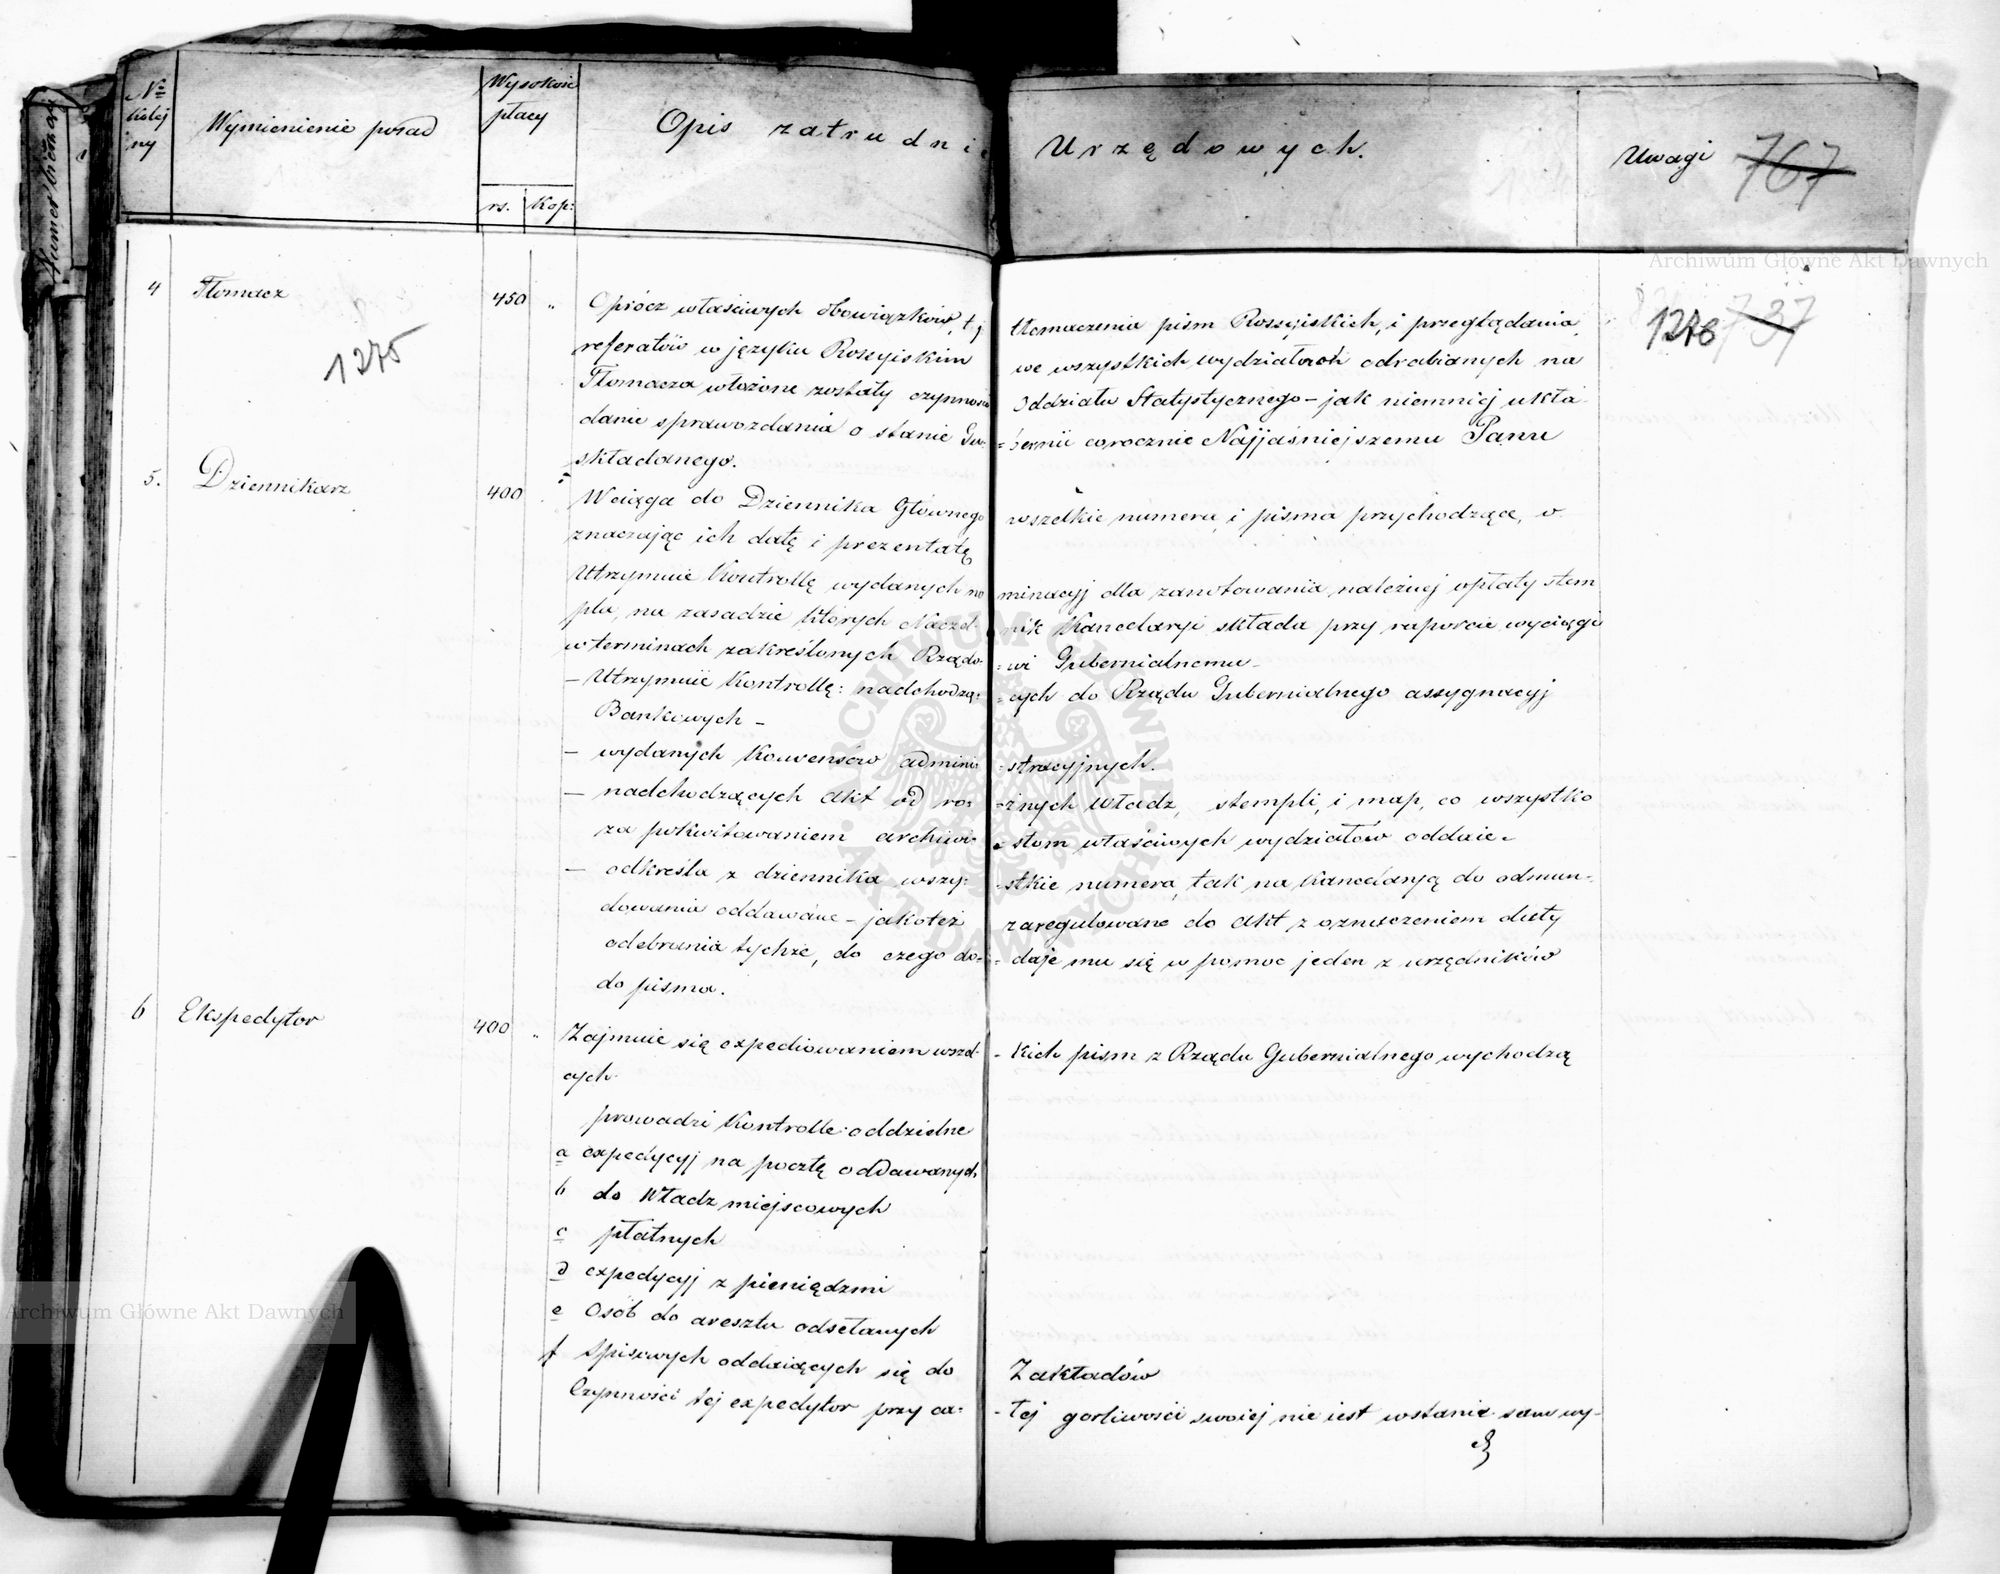 Numer bieżący
Nº kolejny
Wymienienie posad
Wysokość płacy
rs. Kop:
Opis zatrudnie Urzędowych.
Uwagi 767
Archiwum Główne Akt Dawnych
737
1276
1275
4 Tłomacz 450 „ Oprócz właściwych obowiązków, tj tłomaczenia pism Rossyiskich, i przeglądania
referatów w języku Rossyiskim we wszystkich wydziałach odrabianych na
Tłomacza włożone zostały czynności Oddziału Statystycznego – jak niemniej ukła-
danie sprawozdania o stanie Gu-bernii corocznie Najjaśniejszemu Panu
składanego.
5. Dziennikarz 400 „ Wciąga do Dziennika Głównego wszelkie numera, i pisma przychodzące, o
znaczając ich datę i prezentatę
Utrzymuie Kontrollę wydanych no minacyj dla zanotowania należnej opłaty stem
plu, na zasadzie których Naczel-nik Kancelaryi składa przy raporcie wyciągi
w terminach zakreślonych Rządo-wi Gubernialnemu –
– Utrzymuie Kontrollę: nadchodzą-cych do Rządu Gubernialnego assygnacyj
Bankowych –
– wydanych Konsensów admini-stracyjnych.
– nadchodzących akt od ró-żnych władz, stempli, i map, co wszystko
za pokwitowaniem archiwi-stom właściwych wydziałów oddaie –
– odkreśla z dziennika wszy-stkie numera, tak na Kancelaryą do odmun-
dowania oddawane – jakoteż zaregulowane do akt z oznaczeniem daty
odebrania tychże, do czego do-daje mu się w pomoc jeden z urzędników
do pisma.
6 Ekspedytor 400 „ Zajmuie się expediowaniem wszel-kich pism z Rządu Gubernialnego wychodzą
cych
prowadzi Kontrolle oddzielne
a expedycyj na pocztę oddawanych
b do Władz miejscowych
c płatnych
d expedycyj z pieniędzmi
e Osób do aresztu odsełanych
f Spisowych oddaiących się do Zakładów
Czynności tej expedytor przy ca-łej gorliwości swoiej nie iest wstanie sam wy-
Archiwum Główne Akt Dawnych
ARCHIWUM GŁÓWNE AKT DAWNYCH